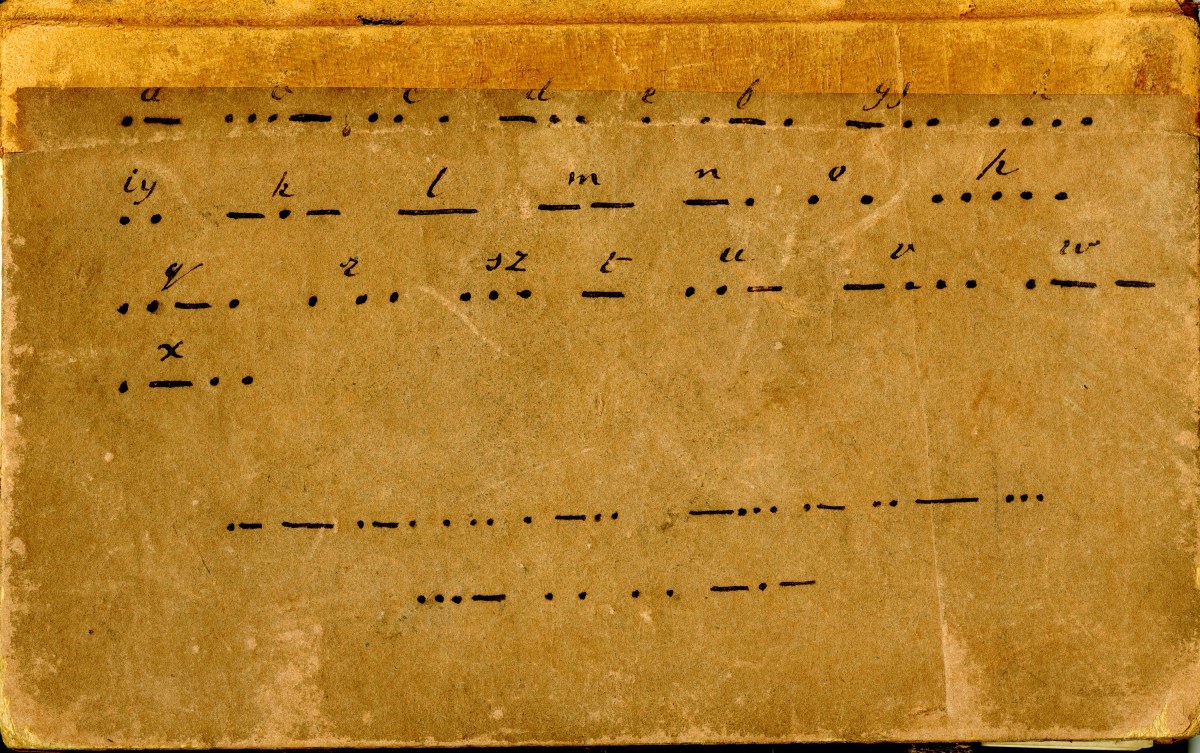 a b c d e f gj h
.- ...- .. . -.. . .-. -.. ....
iy k l m n o p
.. -.- — -- -. . . .....
q r sz t u v w
..-. . .. ... - ..- -... .--
x
.-..
.- — .-. . .. . -.. -... .- .. — ...
...- . . . . -.-